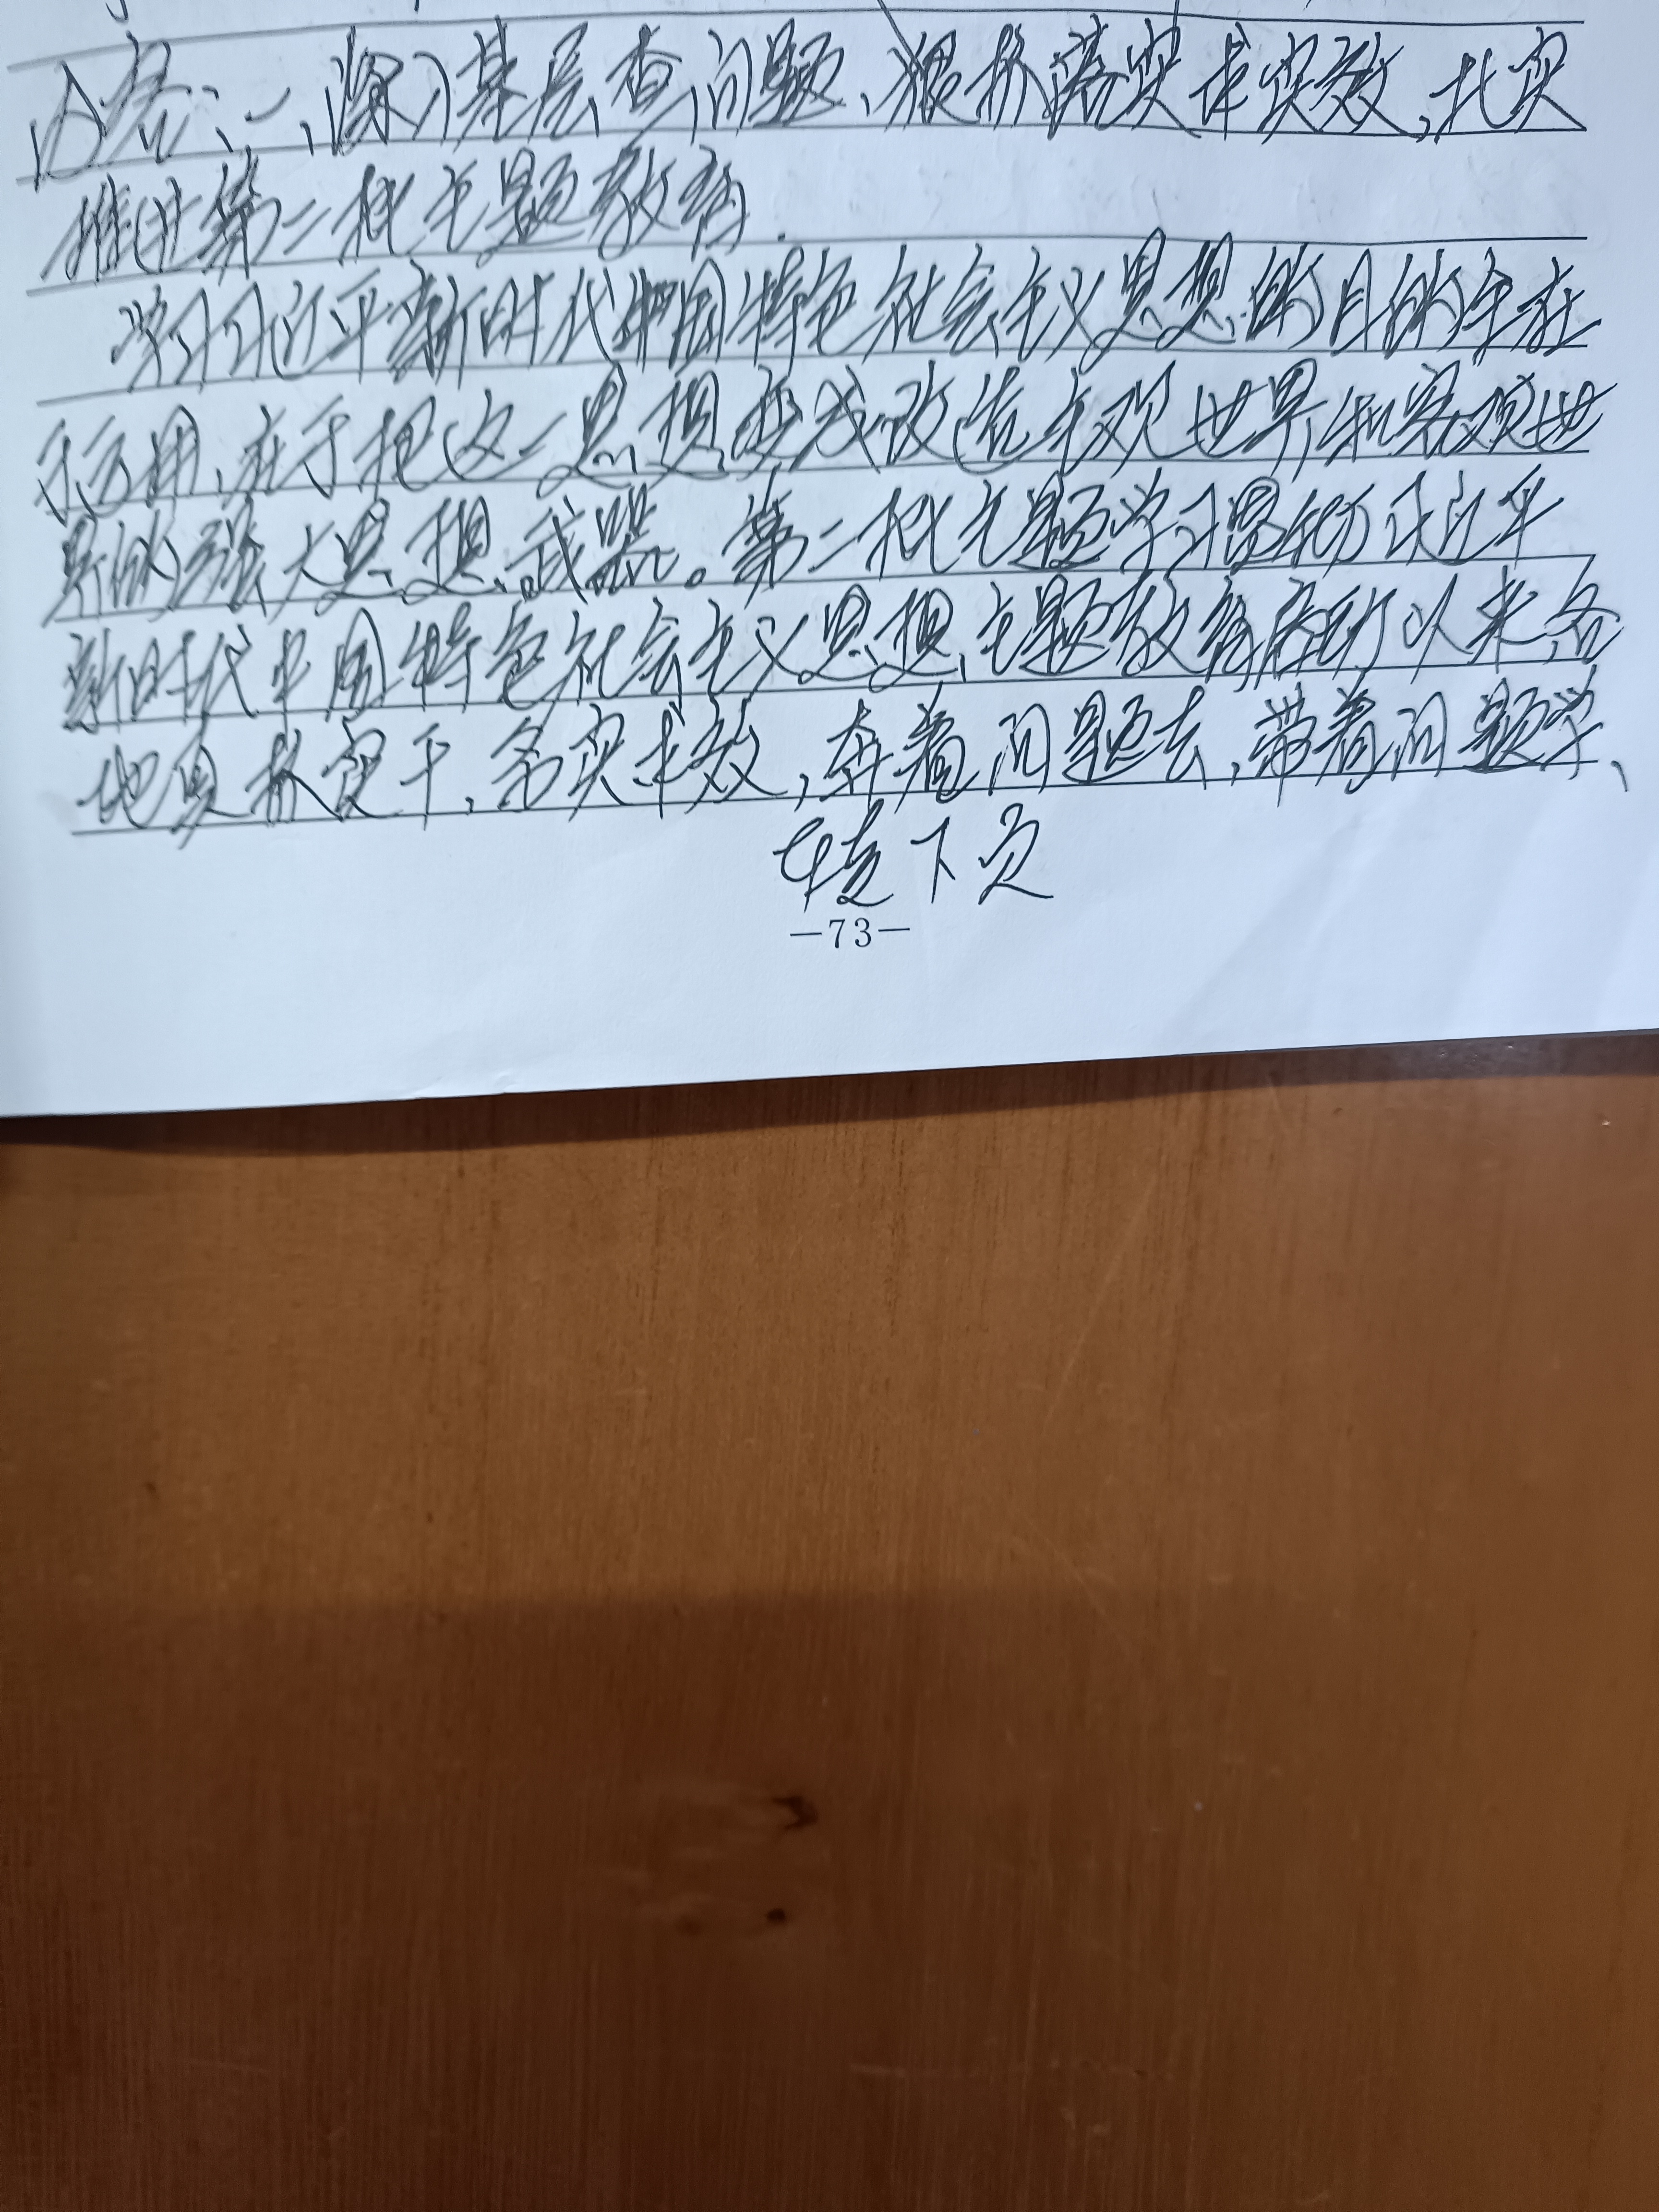 内容：一、深入基层查问题、狠抓落实求实效，扎实
推进第二批主题教育.
学习习近平新时代中国特色社会主义思想的目的全在
于运用，在于把这一思想变成改造主观世界和客观世
界的强大思想武器。第二批主题学习贯彻习近平
新时代中国特色社会主义思想主题教育活动以来，各
地真抓实干，务实求效，奔着问题去，带着问题学、
转下页
—73—